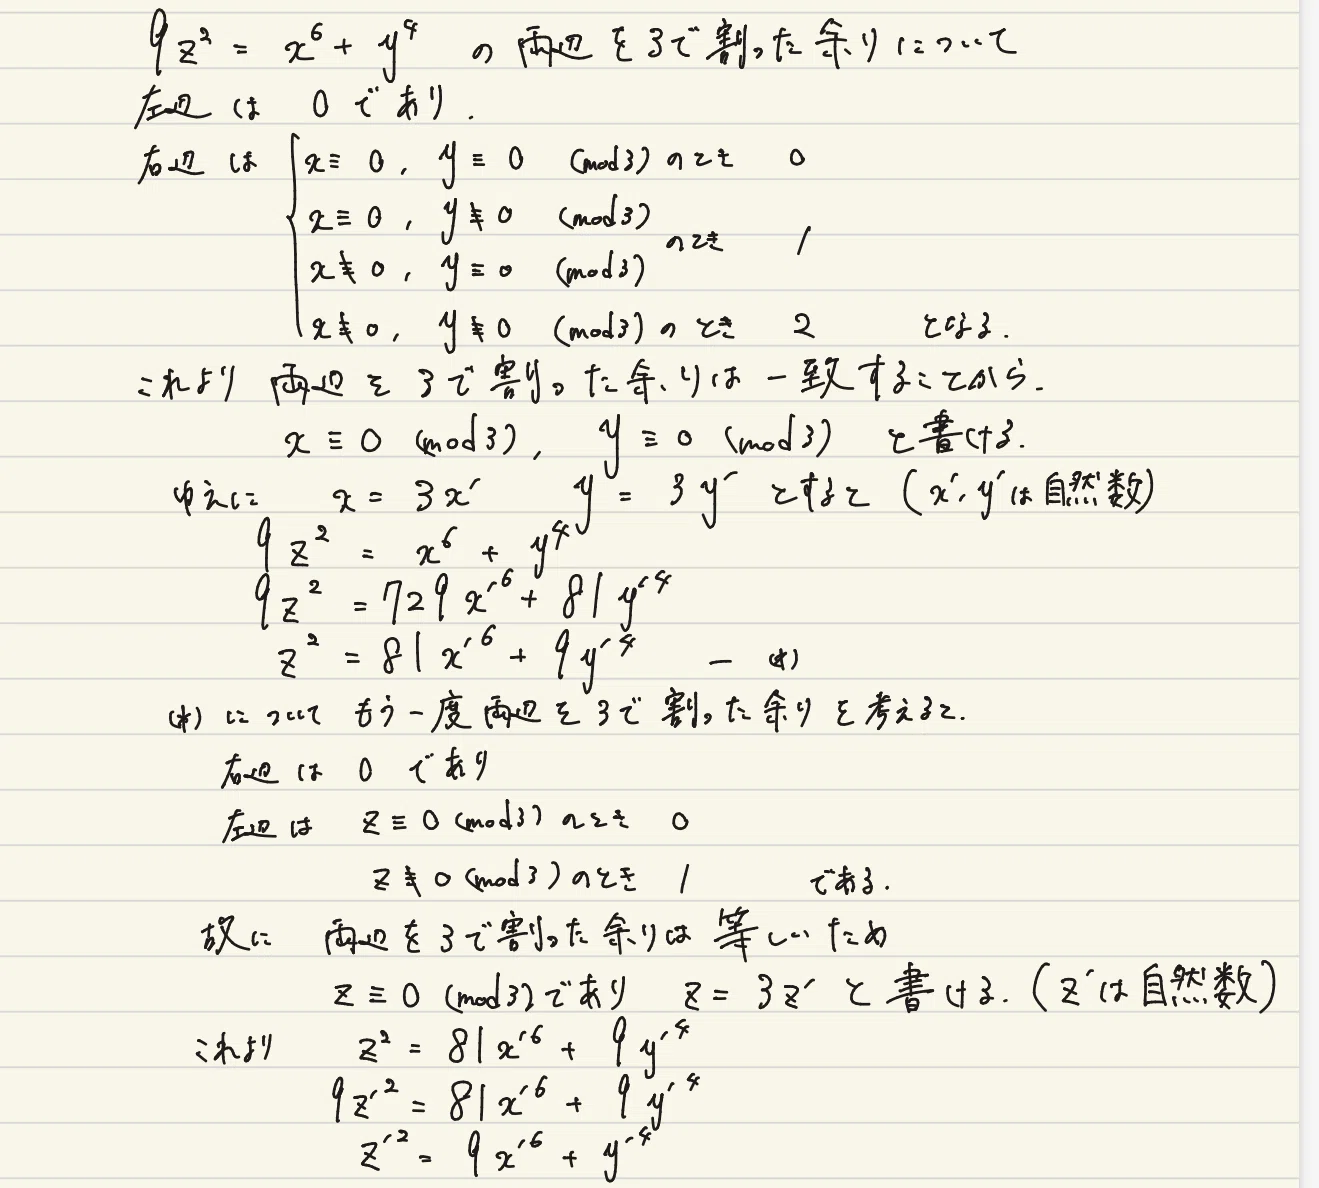 9z² = x⁶ + y⁴ の両辺を3で割った余りについて
左辺は 0であり.
右辺は x≡0, y≡0 (mod3)のとき 0
x≡0, y≢0 (mod3)
のとき 1
x≢0, y≡0 (mod3)
x≢0, y≢0 (mod3)のとき 2 となる.
これより 両辺を3で割った余りは一致することから.
x≡0 (mod3), y≡0 (mod3) と書ける.
ゆえに x = 3x′ y = 3y′ とすると (x′, y′は自然数)
9z² = x⁶ + y⁴
9z² = 729x′⁶ + 81y′⁴
z² = 81x′⁶ + 9y′⁴ ー (*)
(*) について もう一度両辺を3で割った余りを考えると.
右辺は 0 であり
左辺は z≡0 (mod3)のとき 0
z≢0 (mod3)のとき 1 である.
故に 両辺を3で割った余りは等しいため
z≡0 (mod3)であり z = 3z′ と書ける. (z′は自然数)
これより z² = 81x′⁶ + 9y′⁴
9z′² = 81x′⁶ + 9y′⁴
z′² = 9x′⁶ + y′⁴